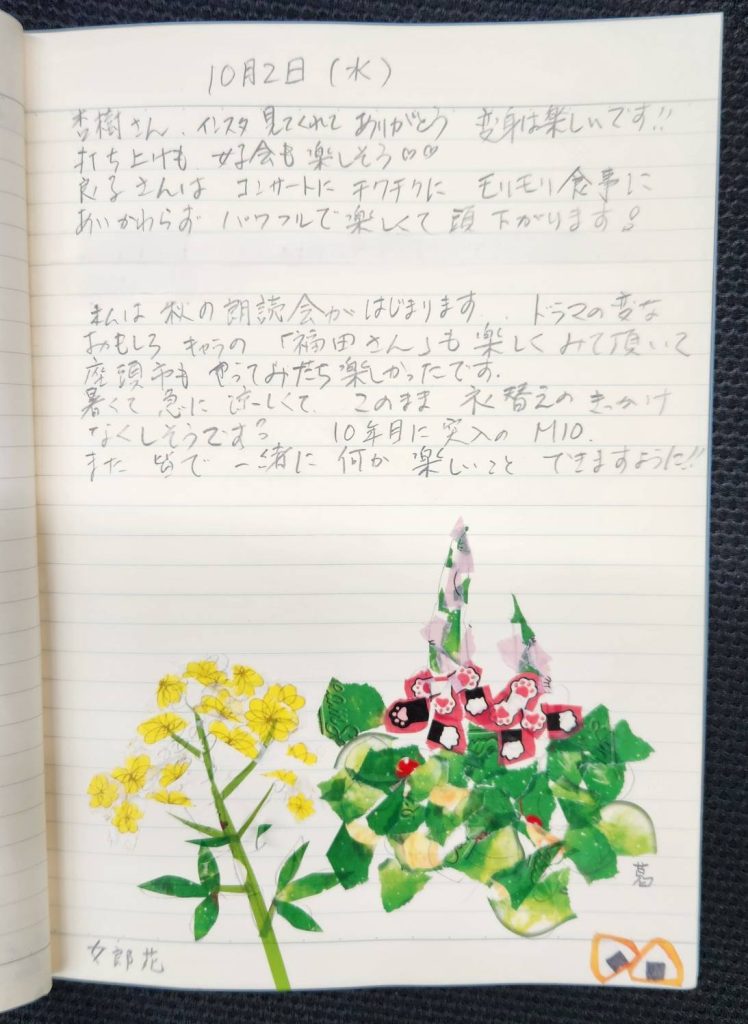 10月2日(水)
杏樹さん、インスタ見てくれてありがとう 変身は楽しいです!!
打ち上げも 女子会も楽しそう♡♡
良子さんは コンサートに チクチクに モリモリ食事に
あいかわらず パワフルで楽しくて 頭下がります
私は 秋の朗読会がはじまります、ドラマの変な
おもしろ キャラの 「福田さん」も 楽しくみて頂いて
座頭市も やってみたら楽しかったです.
暑くて 急に 涼しくて このまま 衣替えの きっかけ
なくしそうです? 10年目に突入の M10.
また 皆で 一緒に 何か 楽しいこと できますように!!
葛
女郎花